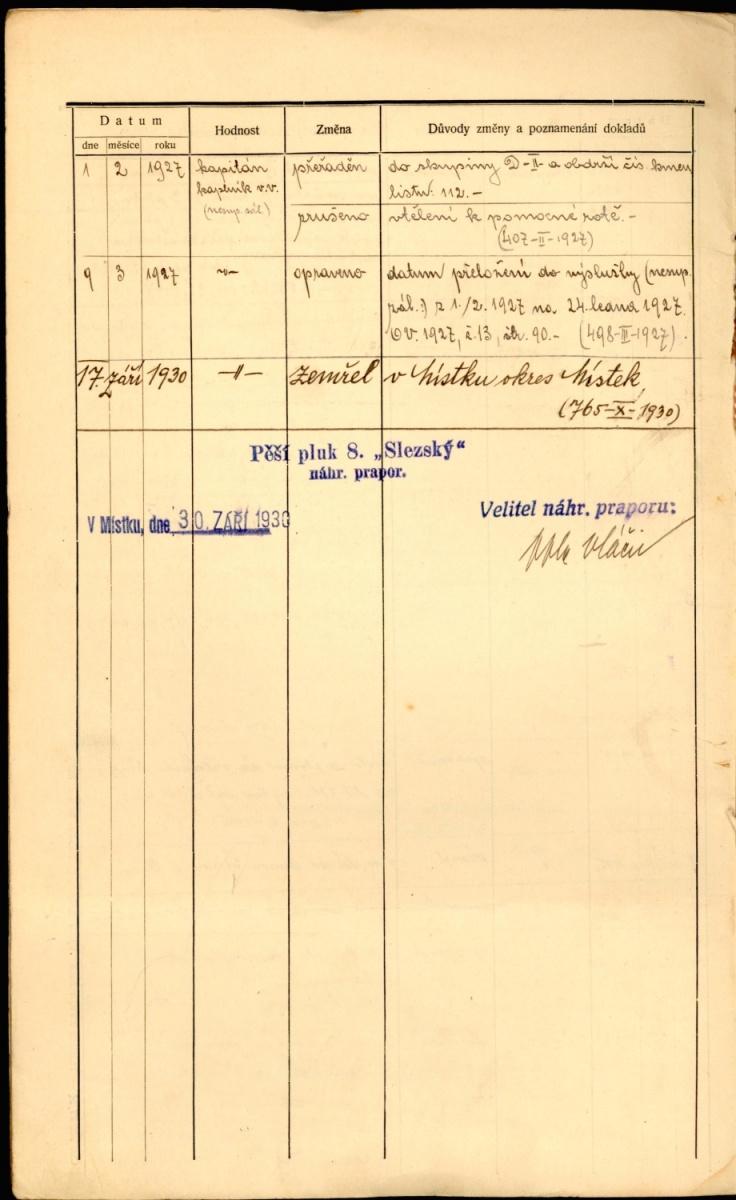 Datum
Hodnost
Změna
Důvody změny a poznamenání dokladů
dne měsíce roku
1 2 1927 kapitán přeřaděn do skupiny D-II- a obdrží čís. kmen.
kapelník v.v. listu: 112.-
(nesup. zál.) zrušeno vtělení k pomocné rotě.-
(407-II-1927)
9 3 1927 -"- opraveno datum přeložení do výslužby (nesup.
zál.) z 1./2. 1927 na 24. ledna 1927.
OV. 1927, č. 13, str. 90.- (498-III-1927).
17. září 1930 -"- zemřel v Místku okres Místek
(765-X-1930)
Pěší pluk 8. „Slezský“
náhr. prapor.
V Místku, dne 30. ZÁŘÍ 1930
Velitel náhr. praporu:
pplk.